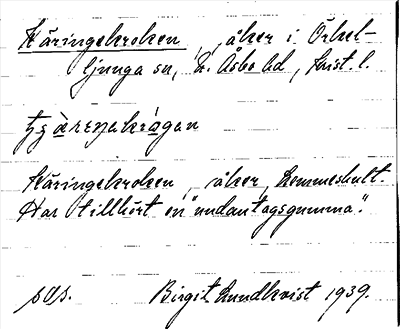 Käringekroken, åker i Örkel-
ljunga sn, N. Åsbo hd, Krist. l.
Käringekroken, åker, Lemmeshult.
Har tillhört en "undantagsgumma".
sus. Birgit Lundkvist 1939.